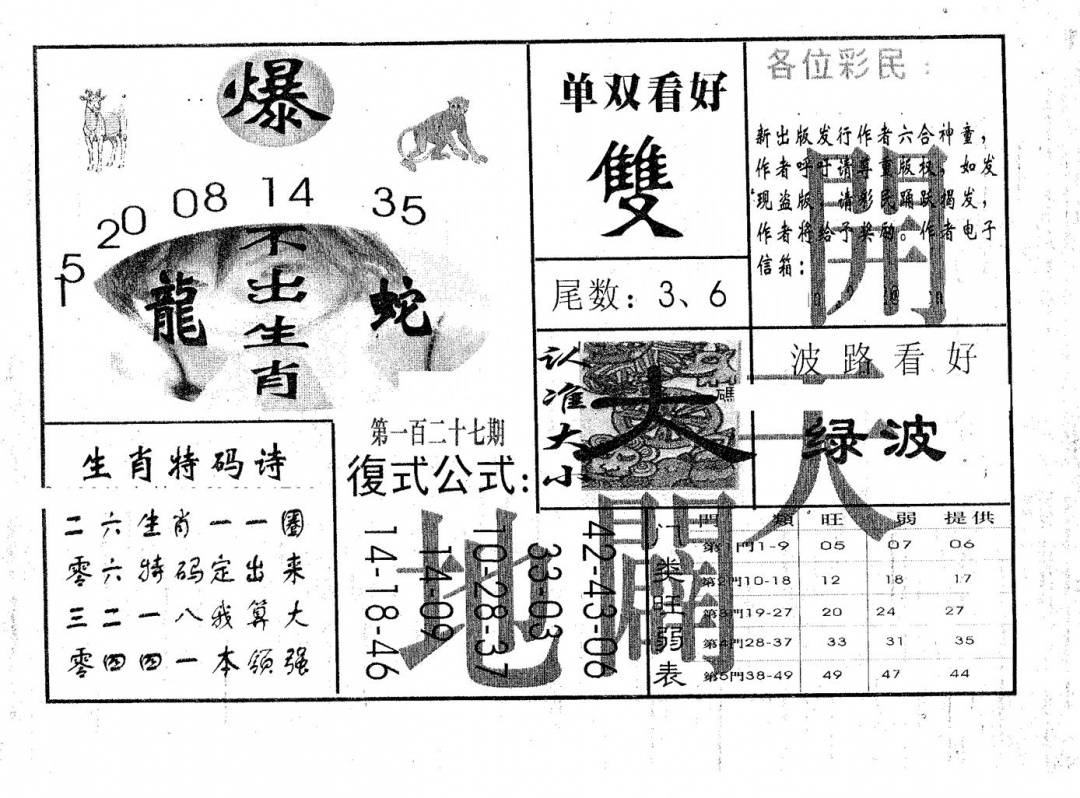 爆
15 20 08 14 35
不出生肖
龍
蛇
单双看好
雙
尾数：3、6
各位彩民：
新出版发行作者六合神童，
作者呼于请尊重版权，如发
现盗版，请彩民踊跃揭发，
作者将给予奖励。作者电子
信箱：
認准大小
大
波路看好
绿波
開天闢地
生肖特码诗
二六生肖一一圈
零六特码定出来
三二一八我算大
零四四一本领强
第一百二十七期
復式公式：
42-43-06
33-03
10-28-37
14-09
14-18-46
门类旺弱表
門類 旺 弱 提供
第1門1-9 05 07 06
第2門10-18 12 18 17
第3門19-27 20 24 27
第4門28-37 33 31 35
第5門38-49 49 47 44